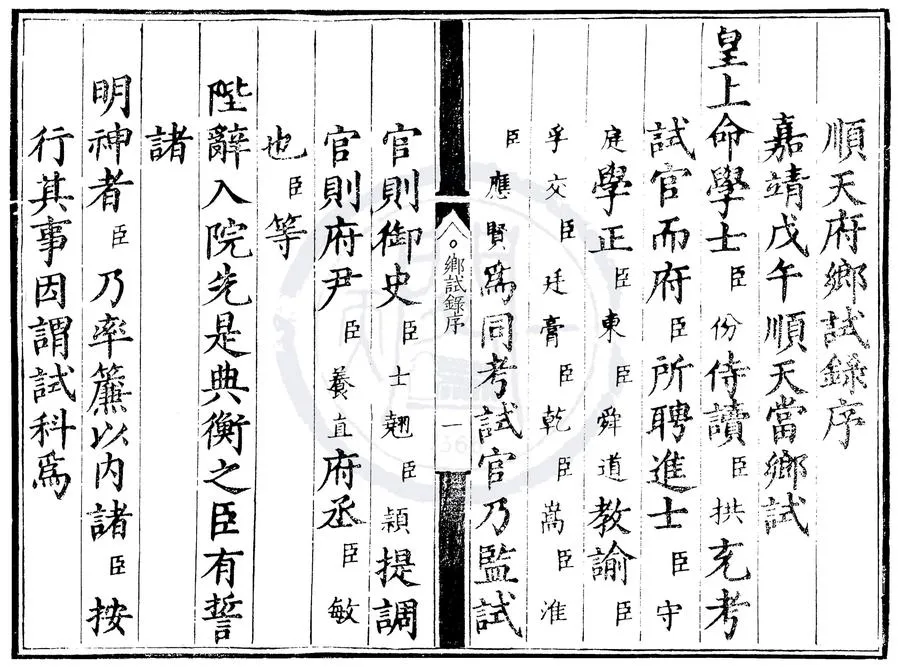 順天府鄉試錄序
嘉靖戊午順天當鄉試
皇上命學士臣份侍讀臣拱充考
試官而府臣所聘進士臣守
庭學正臣東臣舜道教諭臣
孚交臣廷膏臣乾臣嵩臣淮
臣應賢爲同考試官乃監試
鄉試錄序
一
官則御史臣士翹臣穎提調
官則府尹臣養直府丞臣敏
也臣等
陛辭入院先是典衡之臣有誓
諸
明神者臣乃率簾以内諸臣按
行其事因謂試科爲